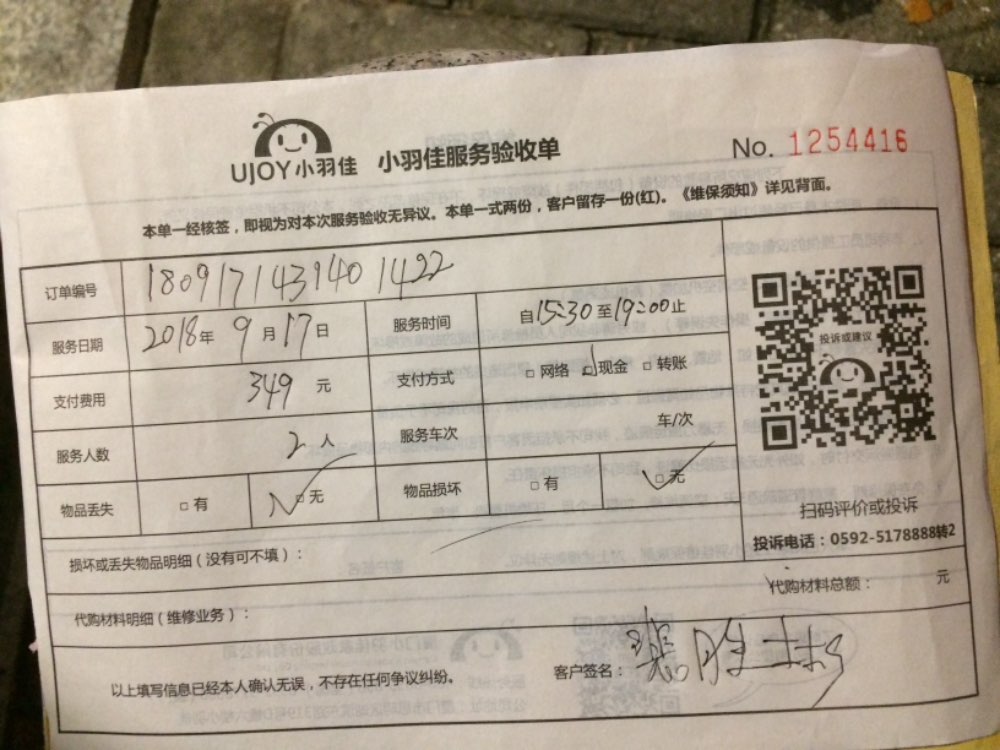 UJOY小羽佳 小羽佳服务验收单 No. 1254416
本单一经核签，即视为对本次服务验收无异议。本单一式两份，客户留存一份(红)。《维保须知》详见背面。
订单编号 180917143940 1422
服务日期 2018年9月17日 服务时间 自15:30至19:00止
支付费用 349元 支付方式 □网络 □现金 □转账
服务人数 2人 服务车次 车/次
物品丢失 □有 □无 物品损坏 □有 □无
投诉或建议
扫码评价或投诉
投诉电话：0592-5178888转2
损坏或丢失物品明细（没有可不填）：
代购材料明细（维修业务）： 代购材料总额： 元
以上填写信息已经本人确认无误，不存在任何争议纠纷。 客户签名：